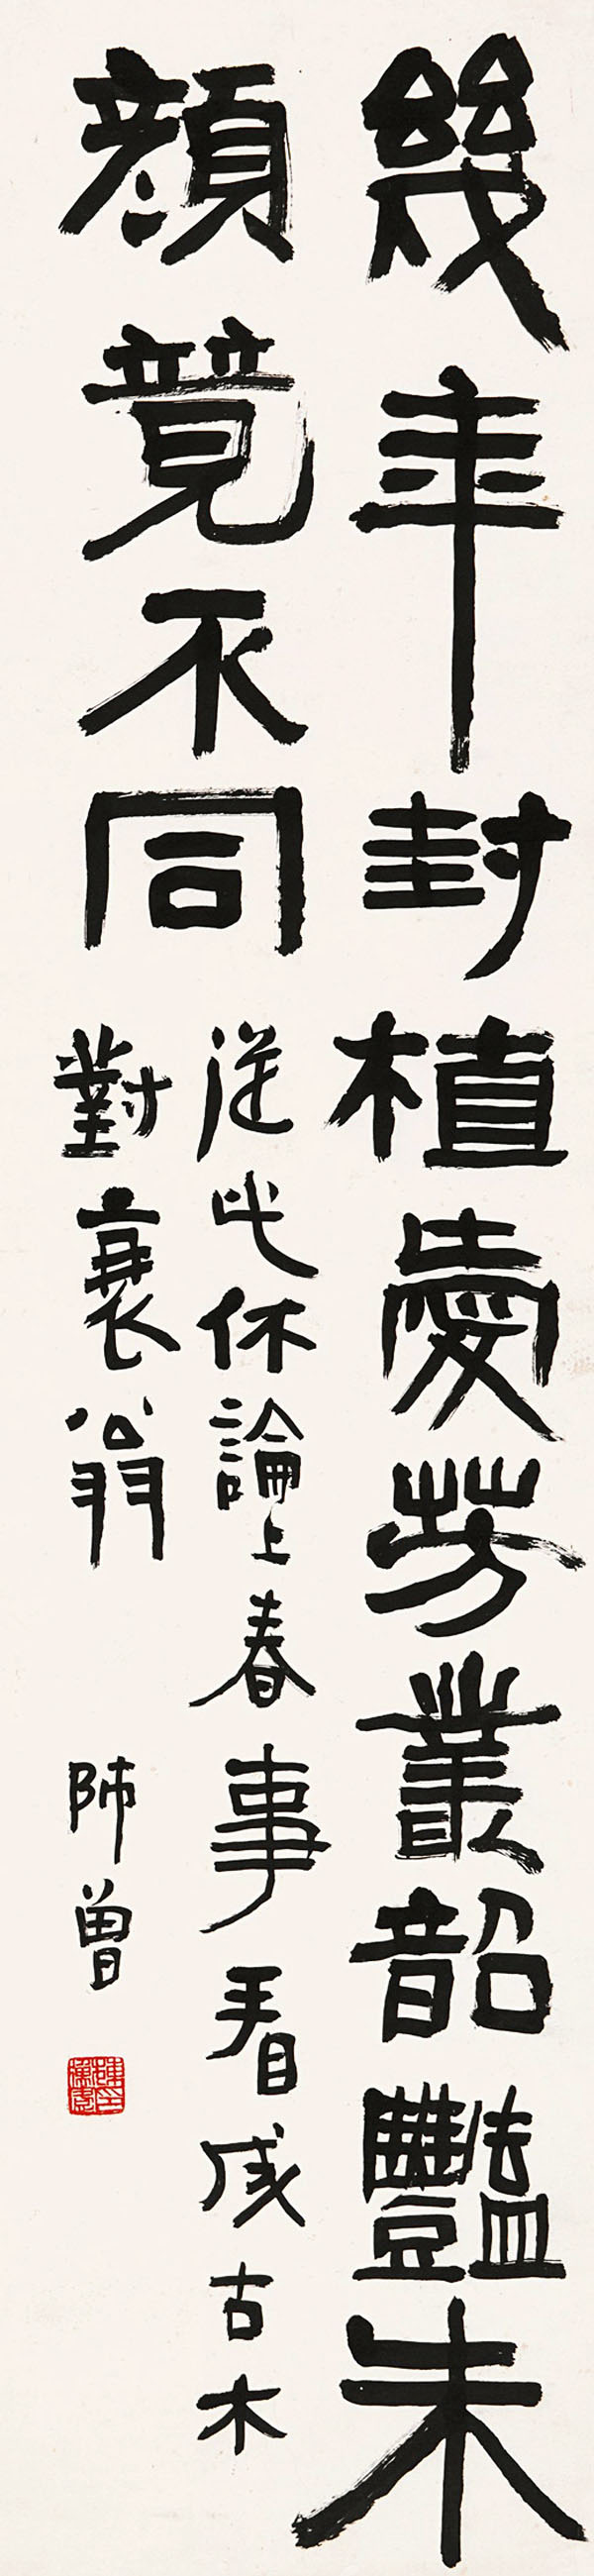 幾年封植愛芳叢韶豔朱
顏竟不同
從此休論上春事看成古木
對衰翁
師曾